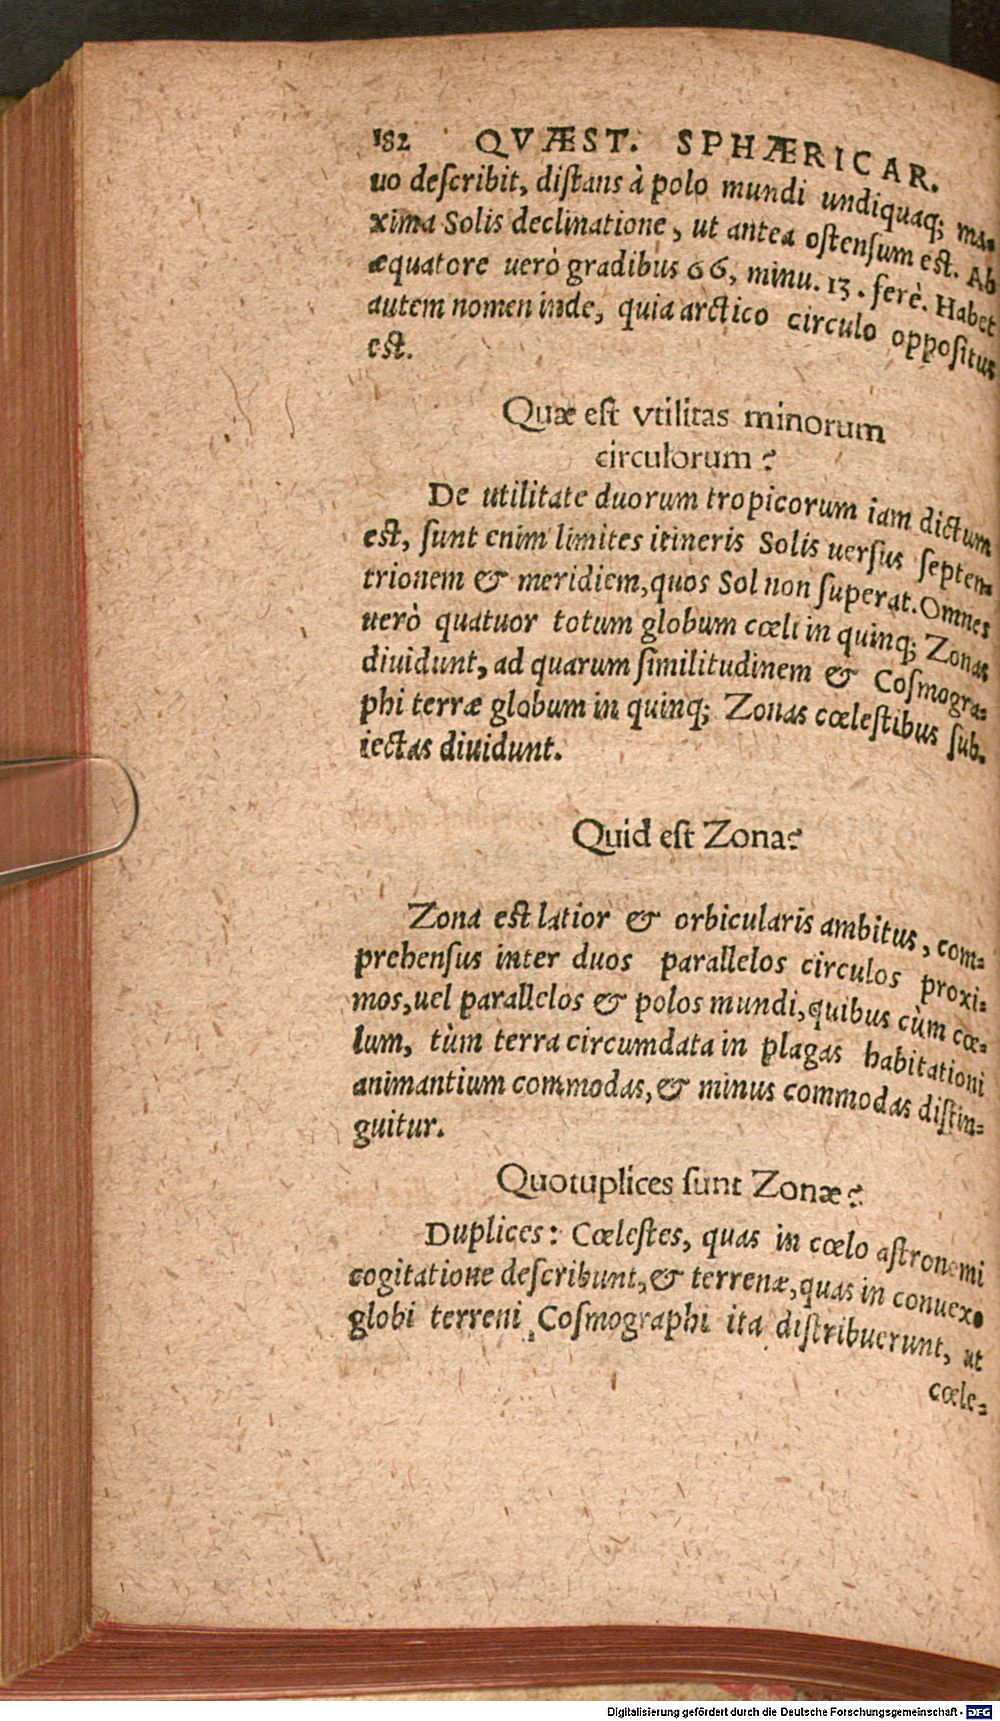 182 QVÆST. SPHÆRICAR.
uo deſcribit, diſtans à polo mundi undiquaq; ma-
xima Solis declinatione, ut antea oſtenſum eſt. Ab
æquatore uerò gradibus 66, minu. 13. ferè. Habet
autem nomen inde, quia arctico circulo oppoſitus
eſt.
Quæ eſt vtilitas minorum
circulorum?
De utilitate duorum tropicorum iam dictum
eſt, ſunt enim limites itineris Solis uerſus ſepten-
trionem & meridiem, quos Sol non ſuperat. Omnes
uerò quatuor totum globum cœli in quinq; Zonas
diuidunt, ad quarum ſimilitudinem & Coſmogra-
phi terræ globum in quinq; Zonas cœleſtibus ſub-
iectas diuidunt.
Quid eſt Zona?
Zona eſt latior & orbicularis ambitus, com-
prehenſus inter duos parallelos circulos proxi-
mos, uel parallelos & polos mundi, quibus cùm cœ-
lum, tùm terra circumdata in plagas habitationi
animantium commodas, & minus commodas diſtin-
guitur.
Quotuplices ſunt Zonæ?
Duplices: Cœleſtes, quas in cœlo aſtronomi
cogitatione deſcribunt, & terrenæ, quas in conuexo
globi terreni Coſmographi ita diſtribuerunt, ut
cœle-
Digitalisierung gefördert durch die Deutsche Forschungsgemeinschaft - DFG